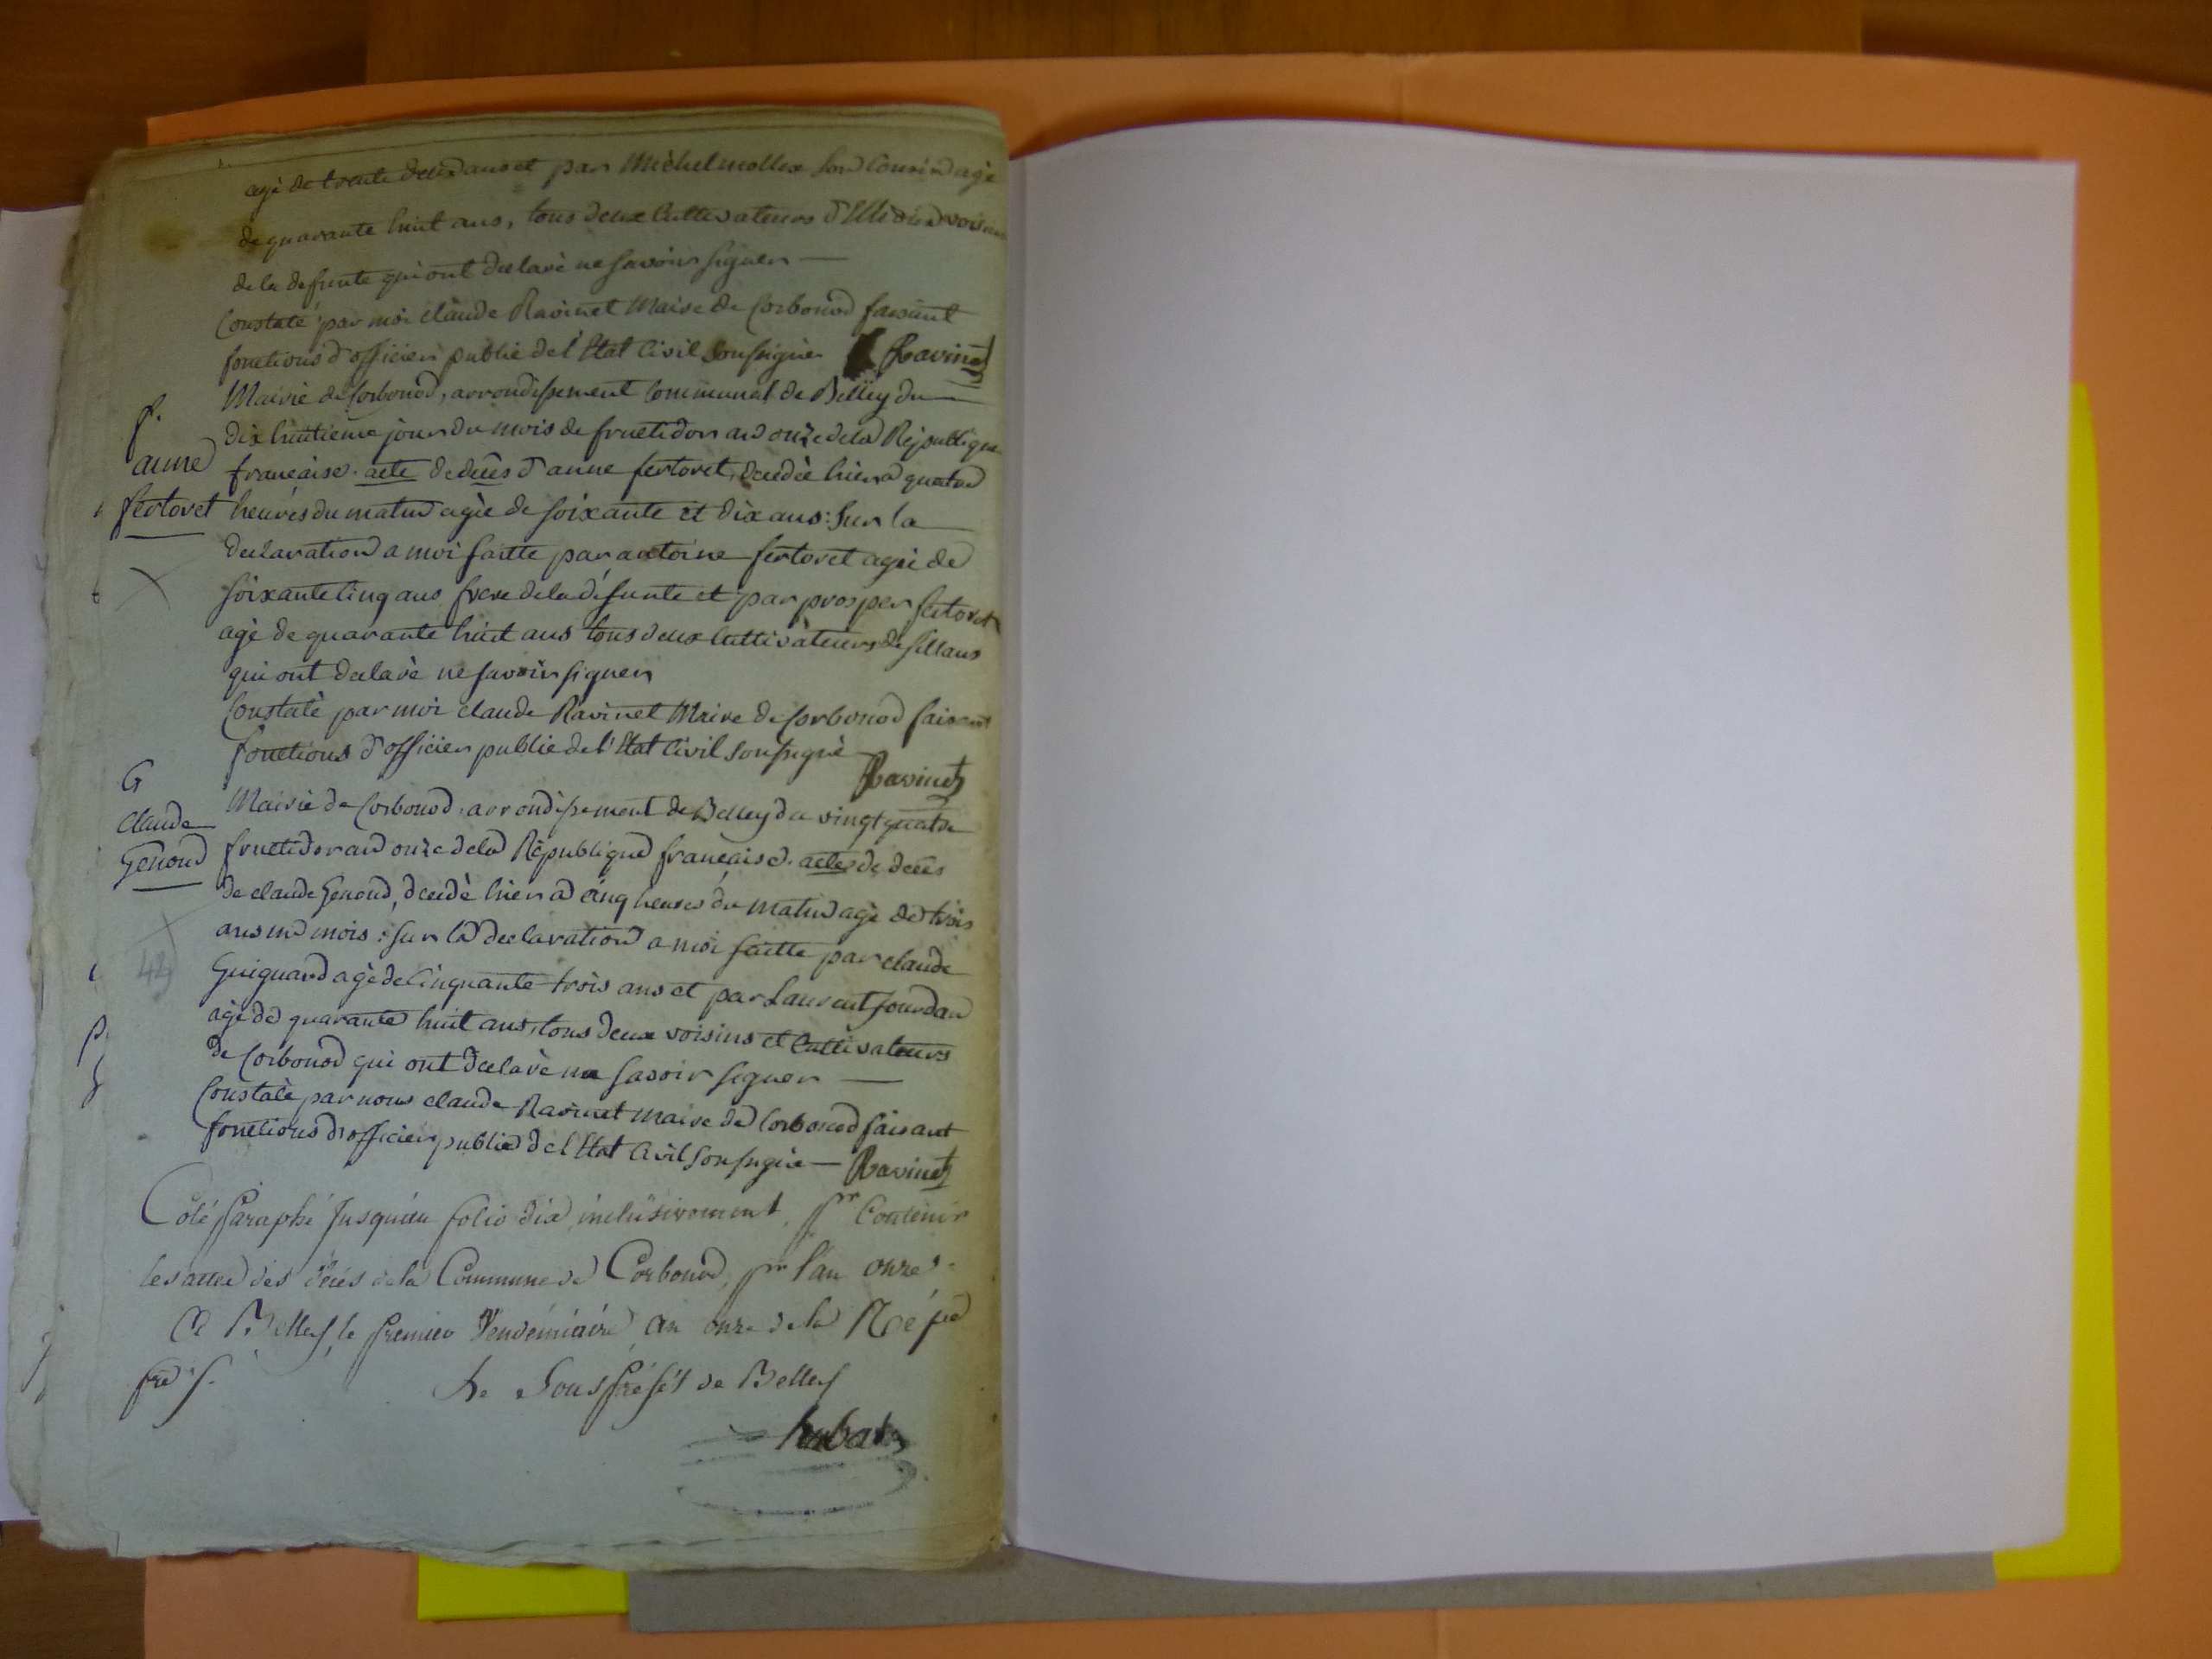 agé de trente deux ans et par Michel mollex son Cousin agé
de quarante huit ans, tous deux Cultivateurs voisins
de la defunte qui ont declaré ne savoir signer —
Constaté par moi claude Ravinet Maire de Corbonod faisant
fonctions d'officier public de l'Etat Civil soussigné Ravinet
Mairie de Corbonod, arrondissement Communal de Belley du
dix huitieme jour du mois de fructidor an onze de la République
f.
anne
fertoret
française. acte de decès d'anne fertoret, decedée hier a quatre
heures du matin agée de soixante et dix ans : sur la
declaration a moi faitte par antoine fertoret agé de
soixante Cinq ans frere de la défunte et par prosper fertoret
agé de quarante huit ans tous deux Cultivateurs de sillans
qui ont declaré ne savoir signer
Constaté par moi claude Ravinet Maire de Corbonod faisant
fonctions d'officier public de l'Etat Civil soussigné
Ravinet
G
claude
Genoud
Mairie de Corbonod, arrondissement de Belley du vingt quatre
fructidor an onze de la République française. acte de decès
de claude Genoud, decedé hier a cinq heures du matin agé de trois
ans un mois : sur la declaration a moi faitte par claude
42
Guiguard agé de Cinquante trois ans et par Laurent Jourdan
agé de quarante huit ans, tous deux voisins et Cultivateurs
de Corbonod qui ont declaré ne savoir signer —
Constaté par nous claude Ravinet maire de Corbonod faisant
fonctions d'officier public de l'Etat Civil soussigné — Ravinet
Coté Paraphé Jusqu'au folio dix inclusivement, pr Contenir
les actes des décés de la Commune de Corbonod, pr l'an onze.
A Belley, le premier Vendémiaire an onze de la Répe
fse /.
Le Sous Préfet de Belley